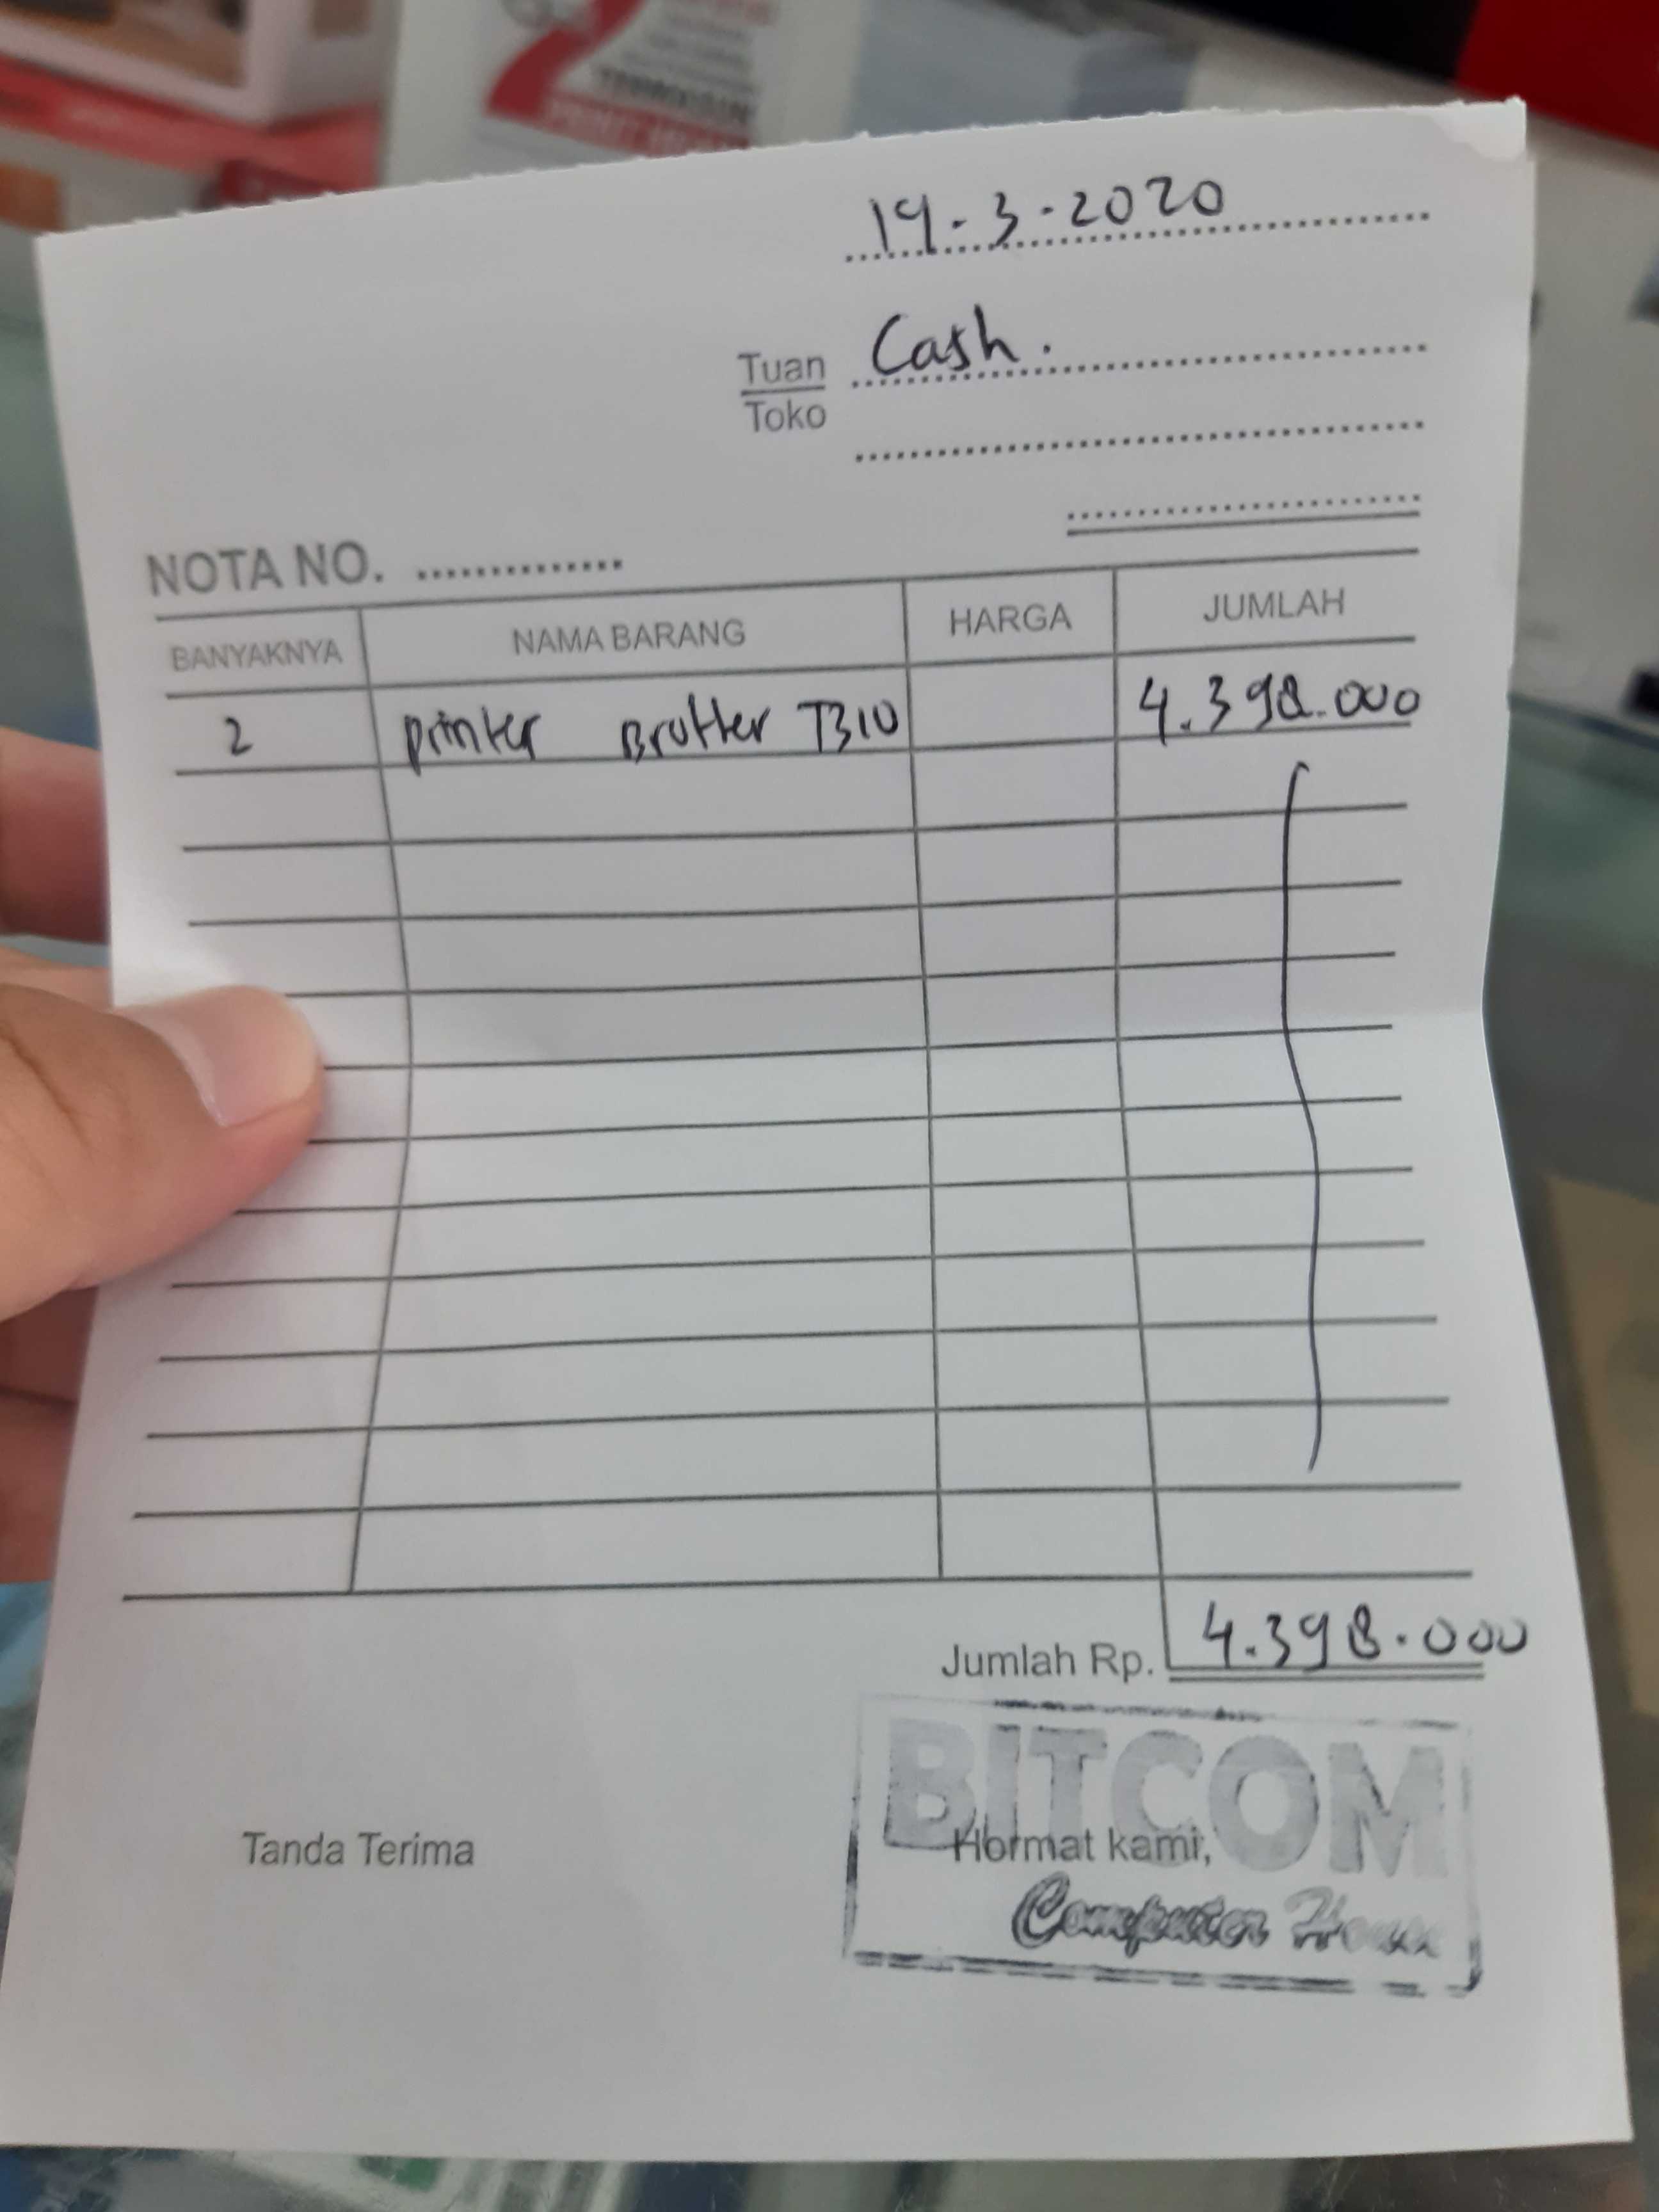 19-3-2020
Tuan Cash.
Toko
NOTA NO. ...............
BANYAKNYA NAMA BARANG HARGA JUMLAH
2 printer Brotter T310 4.398.000
Jumlah Rp. 4.398.000
BITCOM
Tanda Terima Hormat kami,
Computer